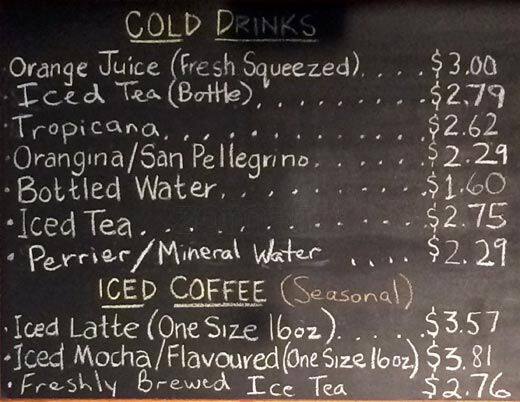 COLD DRINKS
Orange Juice (Fresh Squeezed).....$3.00
· Iced Tea (Bottle).........$2.79
· Tropicana...........$2.62
· Orangina/San Pellegrino......$2.29
· Bottled Water..........$1.60
· Iced Tea............$2.75
· Perrier/Mineral Water ....$2.29
ICED COFFEE (Seasonal)
· Iced Latte (One Size 16oz).....$3.57
· Iced Mocha/Flavoured (One Size 16oz) $3.81
· Freshly Brewed Ice Tea $2.76